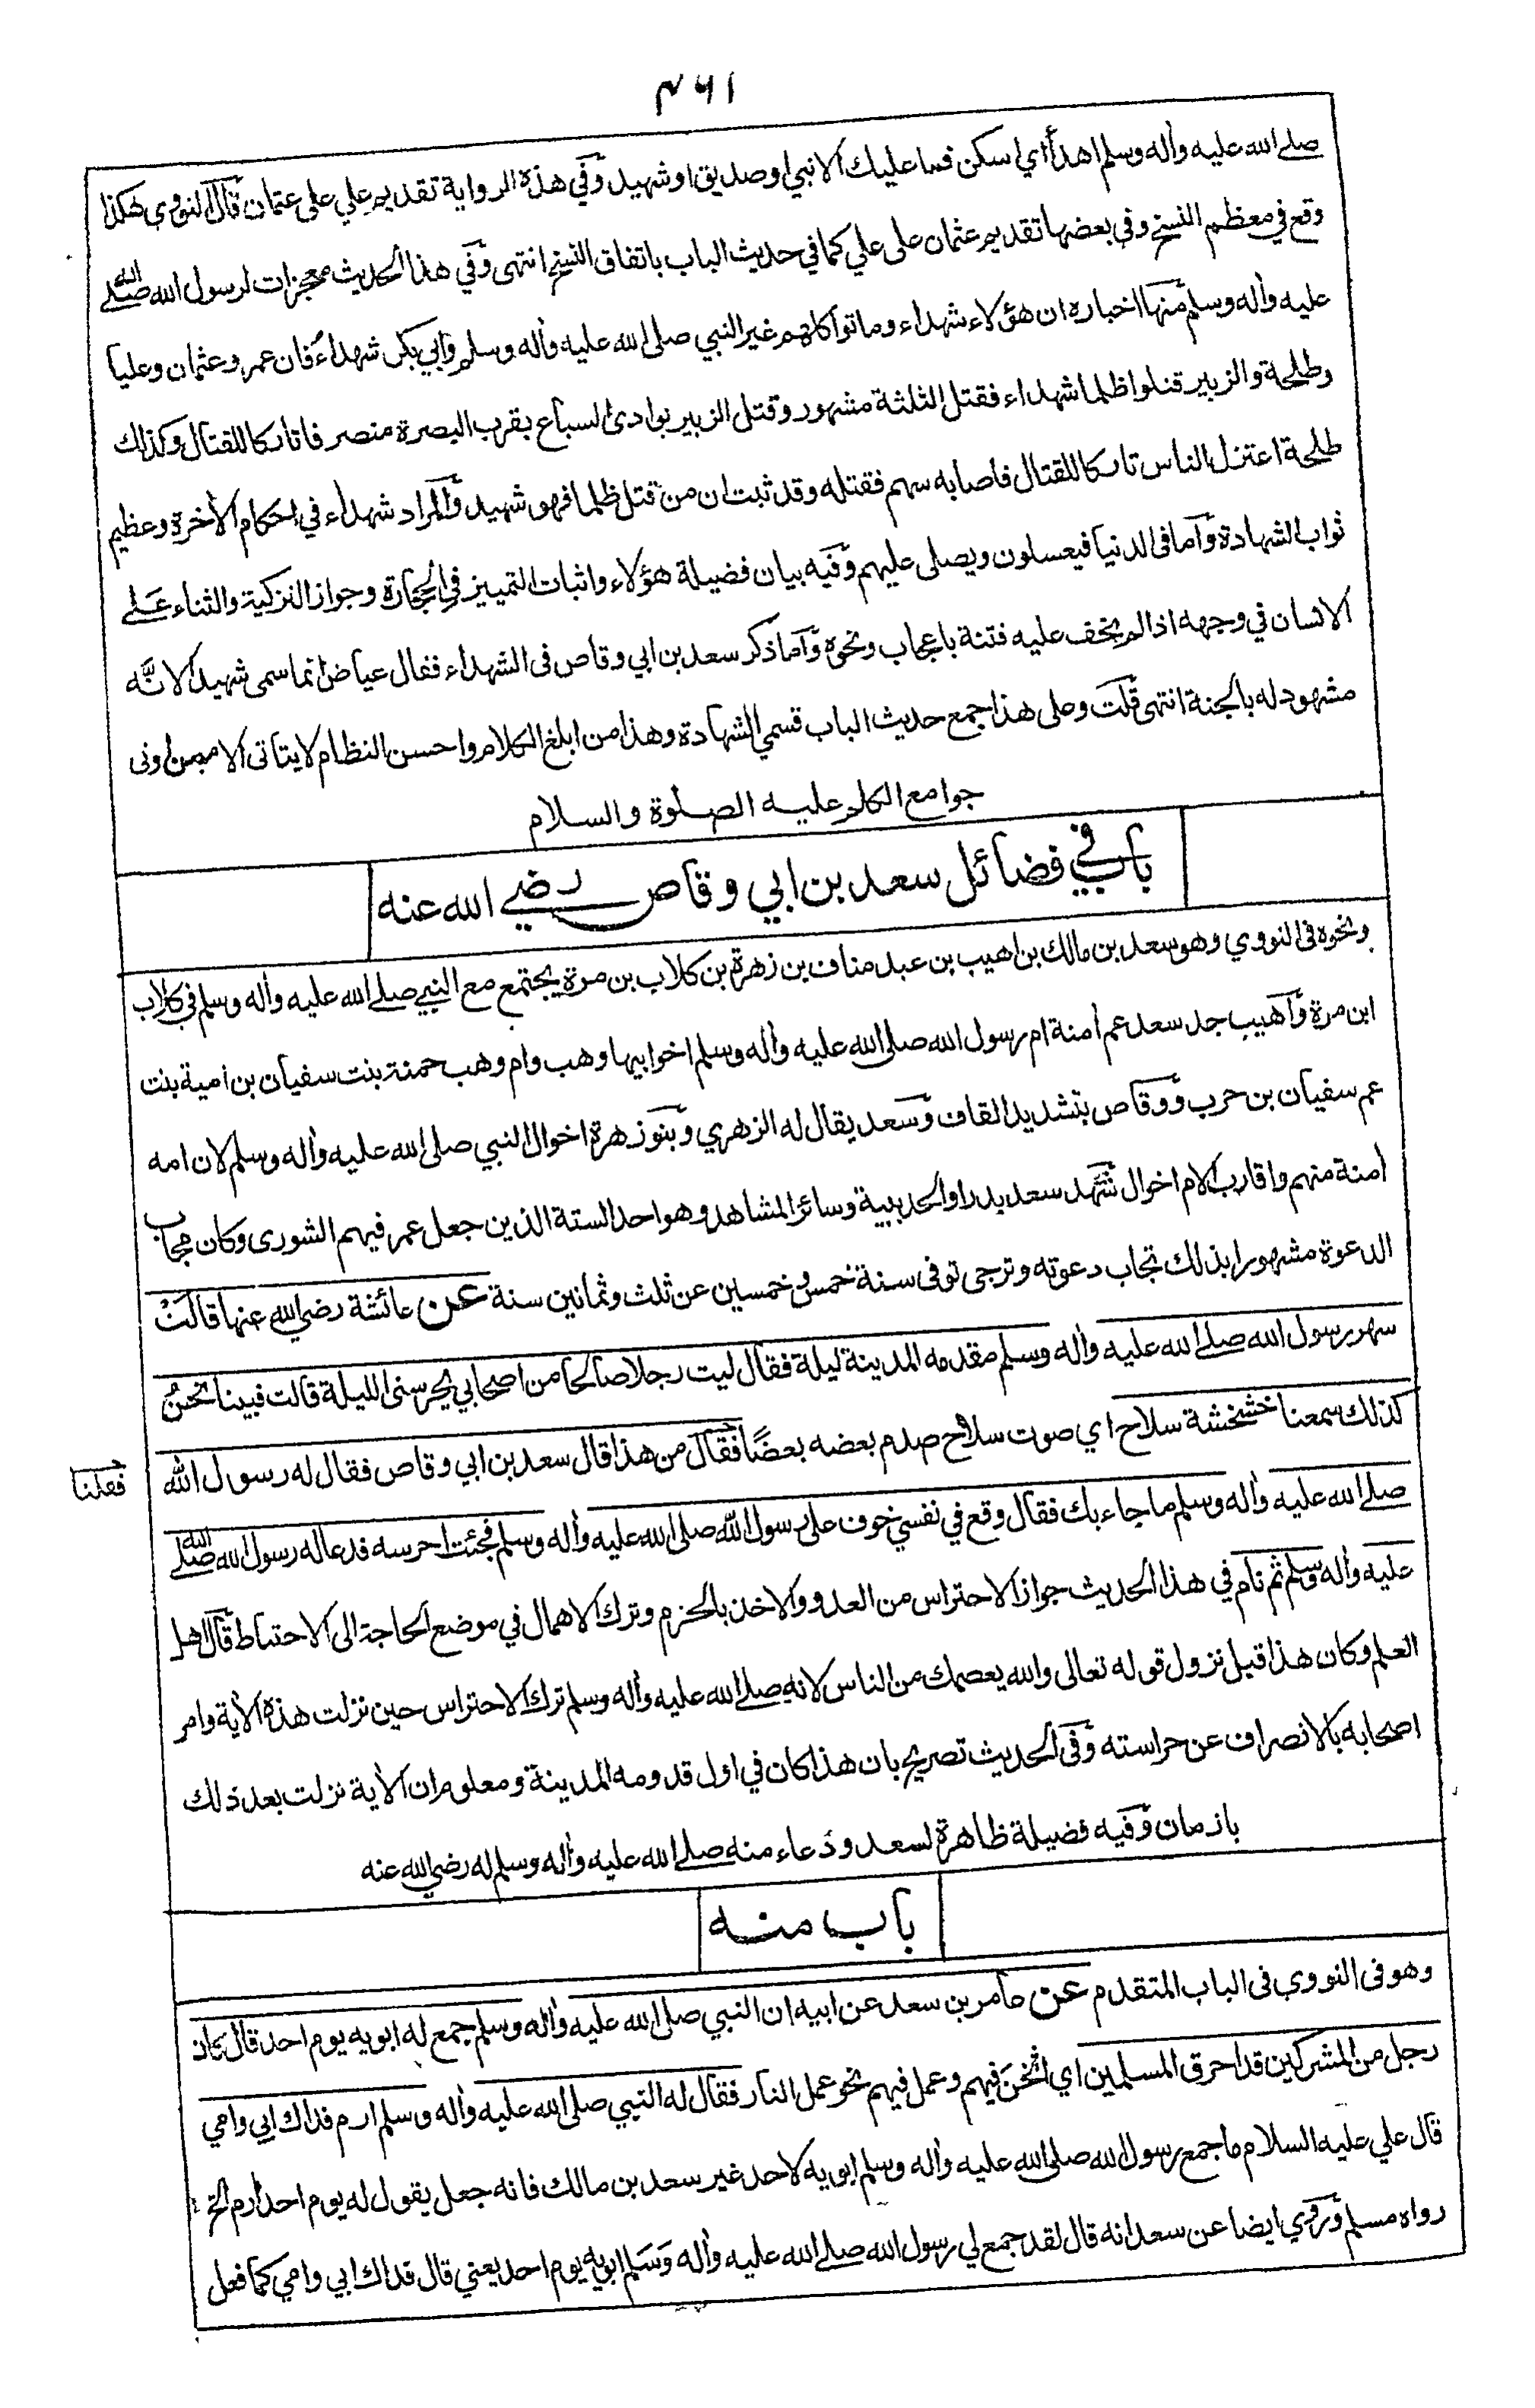 ٤٦١
صلے الله عليه واله وسلم اهدأ اي اسكن فما عليك الا نبي او صديق او شهيد وفي هذه الرواية تقديم علي على عثمان قال النووي هكذا
وقع في معظم النسخ وفي بعضها تقديم عثمان على علي كما في حديث الباب باتفاق النسخ انتهى وفي هذا الحديث معجزات لرسول الله صلے الله
عليه واله وسلم منها اخباره ان هؤلاء شهداء وماتوا كلهم غير النبي صلى الله عليه واله وسلم وابي بكر شهداء فان عمر وعثمان وعليا
وطلحة والزبير قتلوا ظلما شهداء فقتل الثلثة مشهور وقتل الزبير بوادى السباع بقرب البصرة منصرفا تاركا للقتال وكذلك
طلحة اعتزل الناس تاركا للقتال فاصابه سهم فقتله وقد ثبت ان من قتل ظلما فهو شهيد والمراد شهداء في احكام الأخرة وعظيم
ثواب الشهادة واما فى الدنيا فيغسلون ويصلى عليهم وفيه بيان فضيلة هؤلاء واثبات التمييز في الحجارة وجواز التزكية والثناء عَلے
الانسان في وجهه اذا لم يخف عليه فتنة باعجاب ونحوه واما ذكر سعد بن ابي وقاص فى الشهداء فقال عياض انما سمى شهيدا لانَّه
مشهود له بالجنة انتهى قلت وعلى هذا جمع حديث الباب قسمي الشهادة وهذا من ابلغ الكلام واحسن النظام لا يتاتى الا ممن اوتى
جوامع الكلم عليه الصلوة والسلام
باب في فضائل سعد بن ابي وقاص رضي الله عنه
ونحوه فى النووي وهو سعد بن مالك بن اهيب بن عبد مناف بن زهرة بن كلاب بن مرة يجتمع مع النبي صلے الله عليه واله وسلم في كلاب
ابن مرة واهيب جد سعد عم أمنة ام رسول الله صلى الله عليه واله وسلم اخو ابيها وهب وام وهب حمنة بنت سفيان بن امية بنت
عم سفيان بن حرب ووقاص بتشديد القاف وسعد يقال له الزهري وبنو زهرة اخوال النبي صلى الله عليه واله وسلم لان امه
أمنة منهم واقارب الام اخوال شهد سعد بدرا والحديبية وسائر المشاهد وهو احد الستة الذين جعل عمر فيهم الشورى وكان مجاب
الدعوة مشهورا بذلك تجاب دعوته وترجى توفى سنة خمس وخمسين عن ثلث وثمانين سنة عن عائشة رضي الله عنها قالَتْ
سهر رسول الله صلے الله عليه واله وسلم مقدمه المدينة ليلة فقال ليت رجلا صالحا من اصحابي يحرسنى الليلة قالت فبينا نحنُ
كذلك سمعنا خشخشة سلاح اي صوت سلاح صدم بعضه بعضًا فقال من هذا قال سعد بن ابي وقاص فقال له رسول الله
فقلنا
صلے الله عليه واله وسلم ما جاء بك فقال وقع في نفسي خوف على رسول الله صلى الله عليه واله وسلم فجئت احرسه فدعا له رسول الله صلے الله
عليه واله وسلم ثم نام في هذا الحديث جواز الاحتراس من العدو والاخذ بالحزم وترك الاهمال في موضع الحاجة الى الاحتياط قال اهل
العلم وكان هذا قبل نزول قوله تعالى والله يعصمك من الناس لانه صلے الله عليه واله وسلم ترك الاحتراس حين نزلت هذه الأية وامر
اصحابه بالانصراف عن حراسته وفى الحديث تصريح بان هذا كان في اول قدومه المدينة ومعلوم ان الأية نزلت بعد ذلك
بازمان وفيه فضيلة ظاهرة لسعد ودعاء منه صلے الله عليه واله وسلم له رضي الله عنه
باب منه
وهو فى النووي فى الباب المتقدم عن عامر بن سعد عن ابيه ان النبي صلى الله عليه واله وسلم جمع له ابويه يوم احد قال كان
رجل من المشركين قد احرق المسلمين اي اثخنَ فيهم وعمل فيهم نحو عمل النار فقال له النبي صلى الله عليه واله وسلم ارم فداك ابي وامي
قال علي عليه السلام ما جمع رسول الله صلى الله عليه واله وسلم ابويه لاحد غير سعد بن مالك فانه جعل يقول له يوم احد ارم الخ
رواه مسلم وروي ايضا عن سعد انه قال لقد جمع لي رسول الله صلے الله عليه واله وَسَلم ابويه يوم احد يعني قال فداك ابي وامي كما فعل